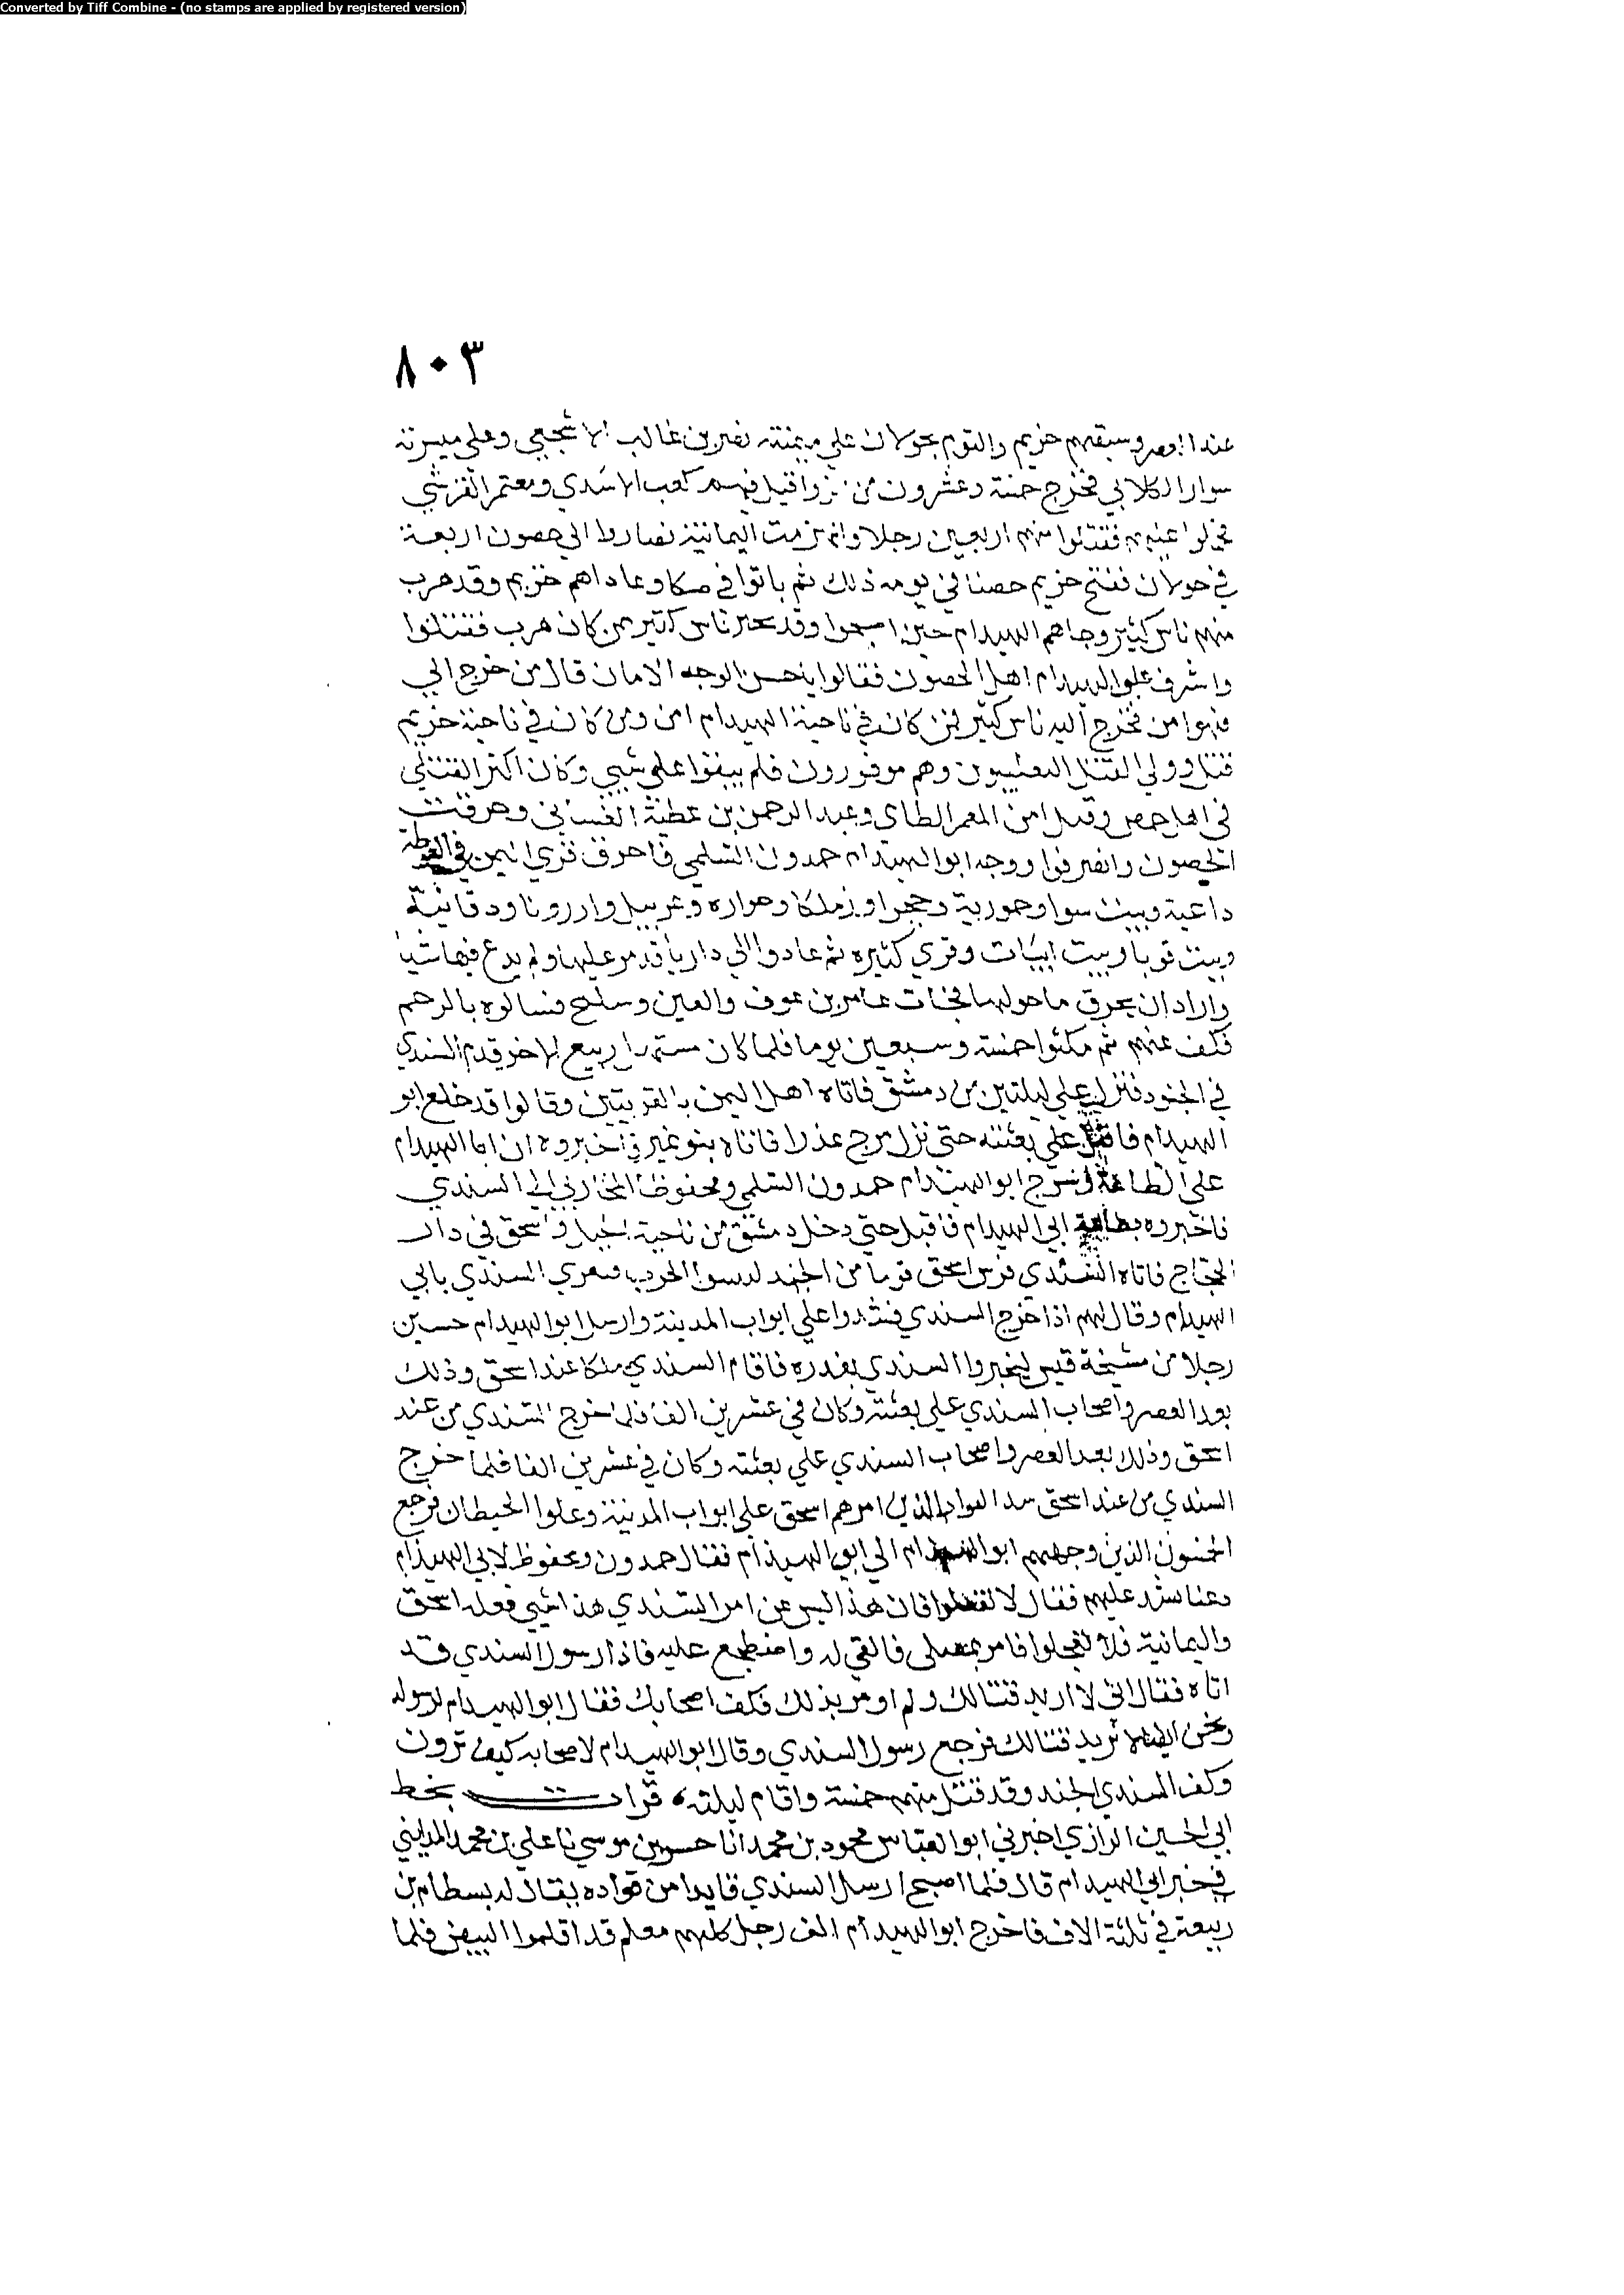 Converted by Tiff Combine - (no stamps are applied by registered version)
٨٠٣
عند العصر وسبقهم خزيم والقوم بجولان علي ميمنته نصر بن غالب الاشجعي وعلي ميسرته
سوار الكلابي فخرج خمسة وعشرون من الزواقيل فيهم كعب الاسدي ومعتمر القرشي
فحملوا عليهم فقتلوا منهم اربعين رجلا وانهزمت اليمانية فصاروا الي حصون اربعة
في جولان ففتح خزيم حصنا في يومه ذلك ثم باتوا في مكا وغاداهم خزيم وقد هرب
منهم ناس كثير وجاهم الهيدام حين اصبحوا وقد ناس كثير من كان هرب فقتلوا
واشرف علي الهيدام اهل الحصون فقالوا يا حسن الوجه الامان قال من خرج الي
فهوا من فخرج اليه ناس كثير فمن كان في ناحية الهيدام امن ومن كان في ناحية خزيم
قتل وولي القتل القيسيون وهم موفورون فلم يبقوا علي شيي وكان اكثر القتلي
في اهل حمص وقتل ابن المعمر الطاي وعبد الرحمن بن عطية الغساني وحرقت
الحصون وانصرفوا ووجه ابو الهيذام حمدون السلمي فاحرق قري اليمن في الغوطة
داعية وبيت سوا وحمورية وحجرا وزملكا وحواره وعربيل وارزونا ودقانية
وبيت قوبا وبيت ابيات وقري كثيره ثم عادوا الي داريا قد مر عليها ولم يدع فيها شيا
واراد ان يحرق ما حولها فجات عامر بن عوف والعين وسليح فسالوه بالرحم
فكف عنهم ثم مكثوا خمسة وسبعين يوما فلما كان مستهل ربيع الاخر قدم السندي
في الجنود فنزل علي ليلتين من دمشق فاتاه اهل اليمن بالقريتين وقالوا قد خلع ابو
الهيدام فاقبل علي بعثته حتي نزل مرج عذرا فاتاه بنو نمير فاخبروه ان ابا الهيدام
علي الطاعة وخرج ابو الهيذام حمدون السلمي ومحفوظ المحاربي الي السندي
فاخبروه بطاعة ابي الهيدام فاقبل حتي دخل دمشق من ناحية الجبل واسحق في دار
الحجاج فاتاه السندي فدس اسحق قوما من الجند لدسوا الحرب فيغري السندي بابي
الهيدام وقال لهم اذا خرج السندي فشدوا علي ابواب المدينة وارسل ابو الهيدام خمسين
رجلا من مشيخة قيس ليخبروا السندي بغدره فاقام السندي ملكا عند اسحق وذلك
بعد العصر واصحاب السندي علي بعثته وكان في عشرين الفا فلما خرج السندي من عند
اسحق وذلك بعد العصر واصحاب السندي علي بعثته وكان في عشرين الفا فلما خرج
السندي من عند اسحق سد القواد الذين امرهم اسحق علي ابواب المدينة وعلوا الحيطان فرجع
الخمسون الذين وجههم ابو الهيدام الي ابي الهيذام فقال حمدون ومحفوظ لابي الهيذام
دعنا نشد عليهم فقال لا تفعلوا فان هذا ليس عن امر السندي هذا شيي فعله اسحق
واليمانية فلا تعجلوا فامر بمصلي فالقي له واضطجع عليه فاذا رسول السندي قد
اتاه فقال اني لا اريد قتالك ولم اومر بذلك فكف اصحابك فقال ابو الهيدام لرسوله
ونحن ايضا لا نريد قتالك فرجع رسول السندي وقال ابو الهيدام لاصحابه كيف ترون
وكف السندي الجند وقد قتل منهم خمسة واقام ليلته، قرات بخط
ابي الحسين الرازي اخبرني ابو العباس محمود بن محمد انا حسين بن موسي نا علي بن محمد المدايني
في خبر ابي الهيدام قال فلما اصبح ارسل السندي قايدا من قواده يقال له بسطام بن
ربيعة في ثلثة الاف فاخرج ابو الهيدام الف رجل كلهم معلم قد اقلموا البيض فلما